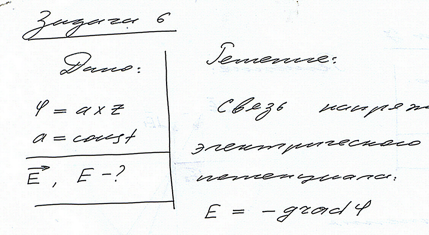 Задача 6
Дано:
φ = axz
a = const
E⃗, E - ?
Решение:
Связь
электрического
потенциала:
E = -grad φ